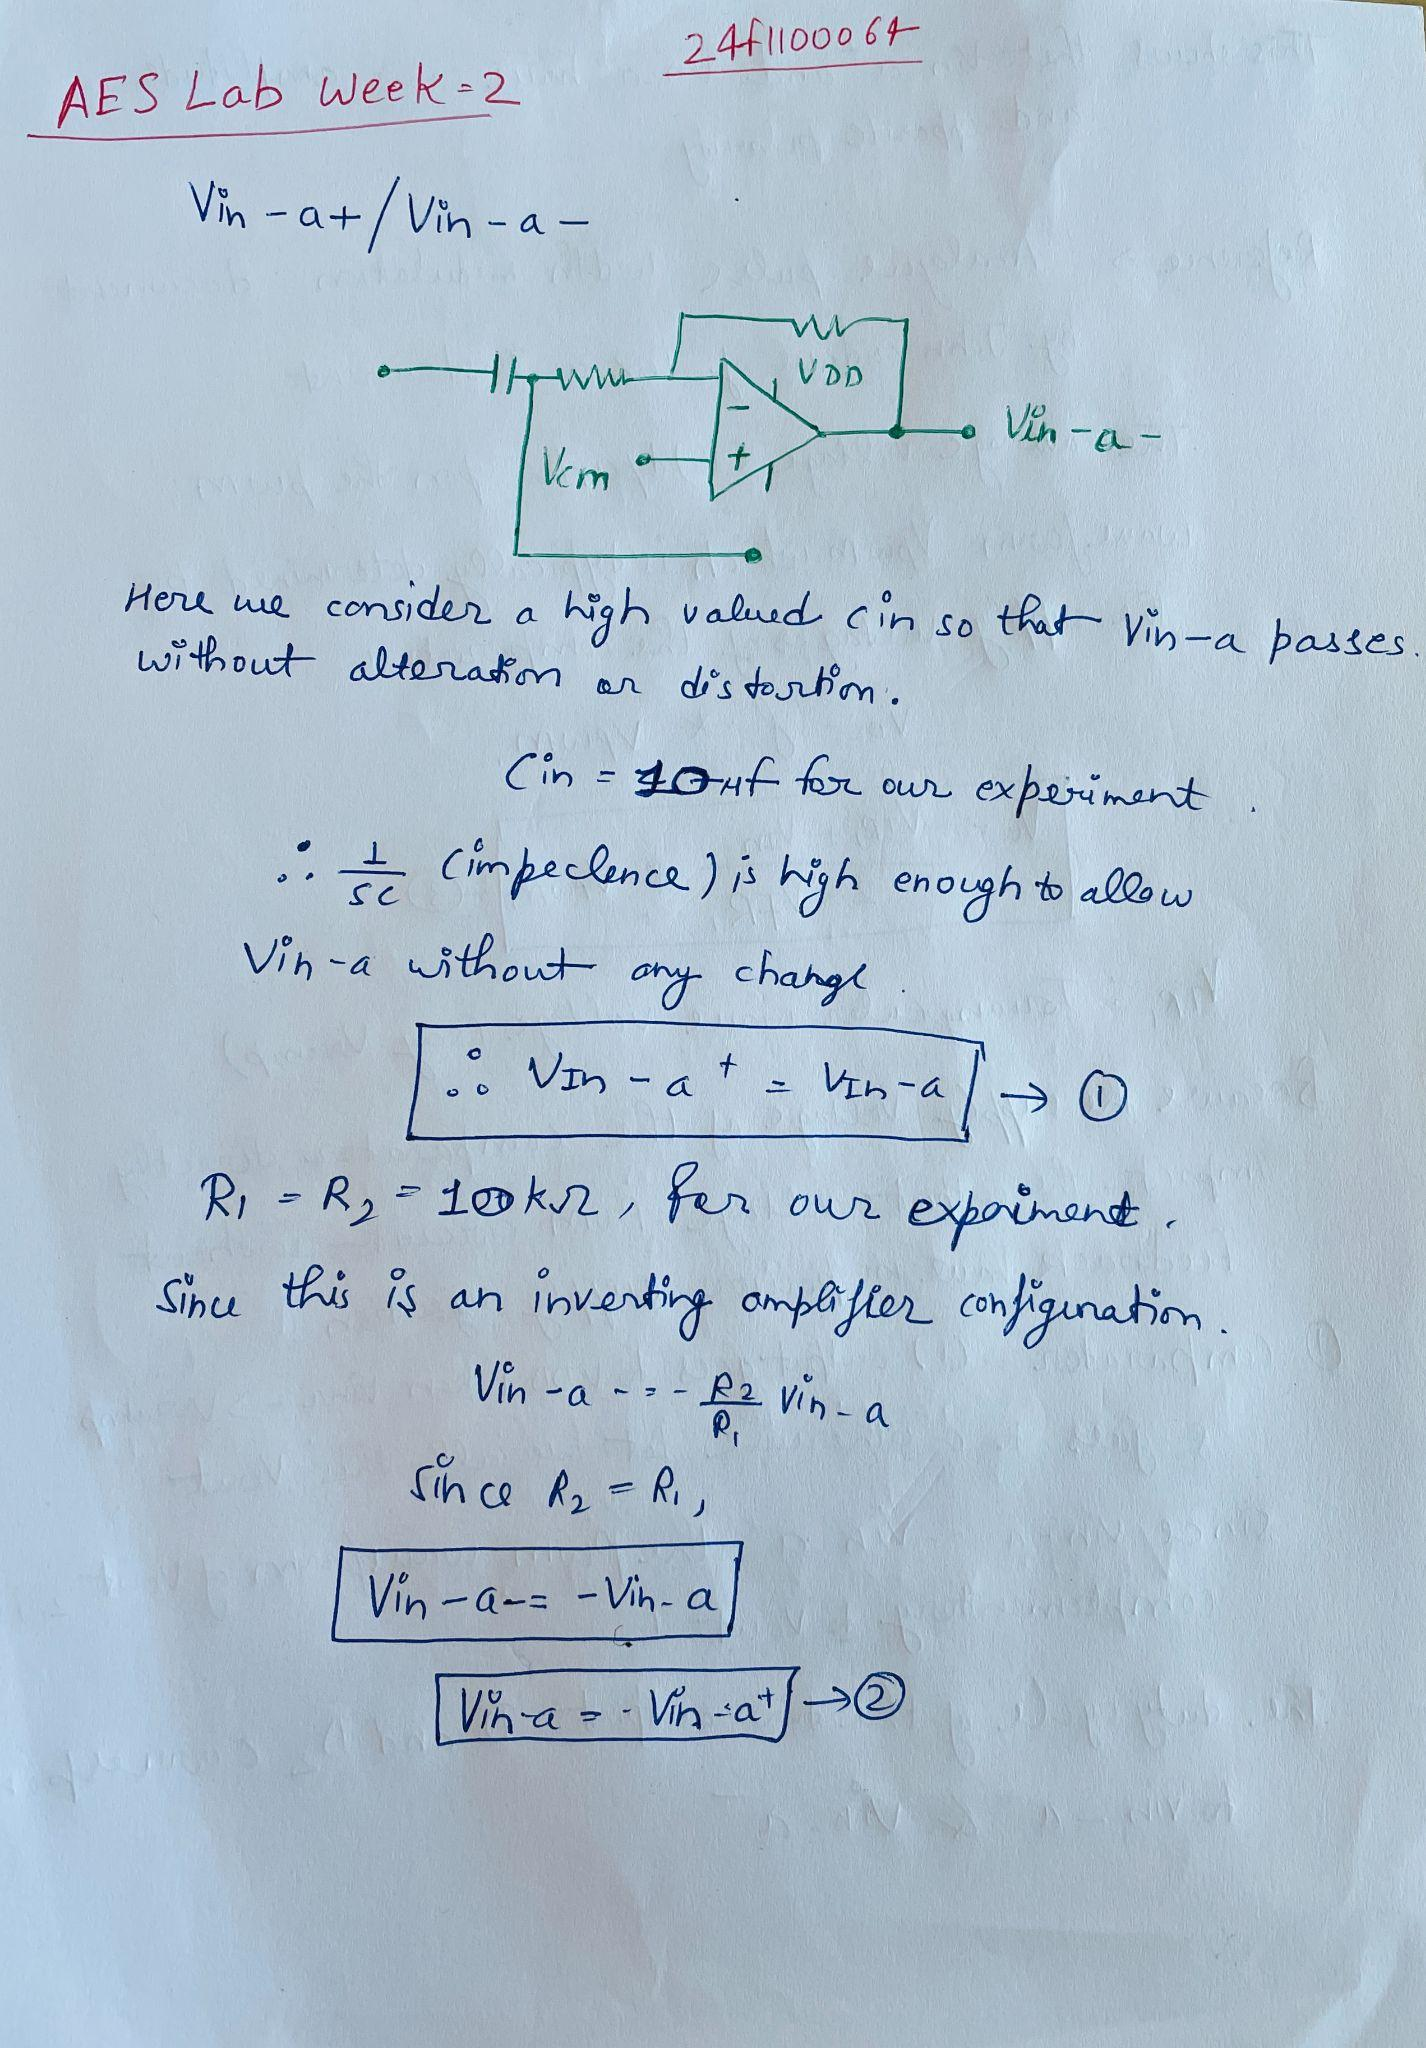 24f1100064
AES Lab Week-2
Vin-a+/Vin-a-
VDD
Vin-a-
Vcm
-
+
Here we consider a high valued Cin so that Vin-a passes.
without alteration or distortion.
Cin = 10µf for our experiment.
∴ 1/SC (impedence) is high enough to allow
Vin-a without any change.
∴ VIn-a+ = VIn-a → ①
R1 = R2 = 100kΩ, for our expoiment.
Since this is an inverting amplifier configuration.
Vin-a- = - R2/R1 Vin-a
Since R2 = R1,
Vin-a- = -Vin-a
Vin-a = -Vin-a+ → ②